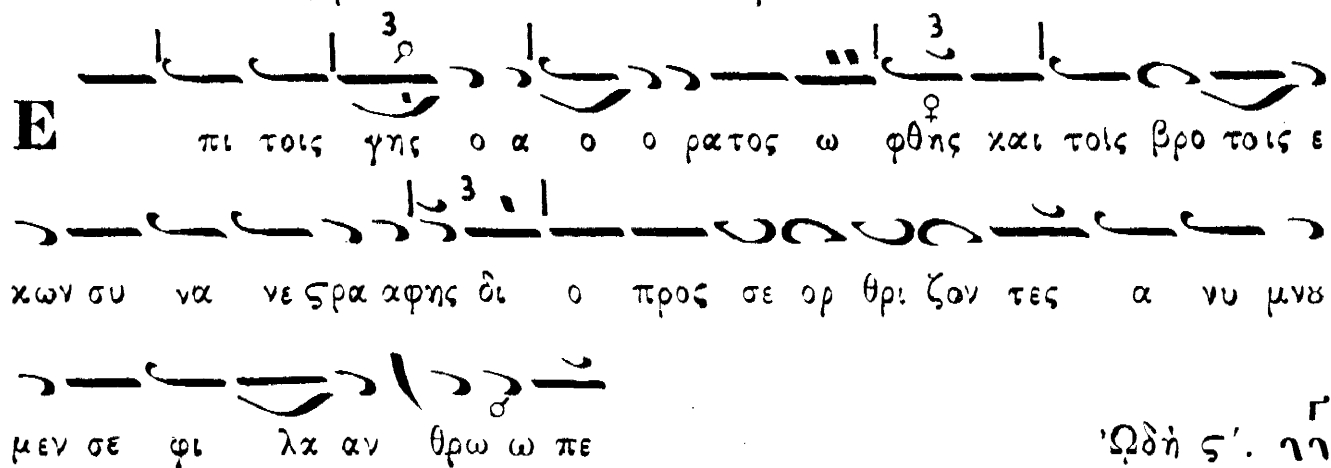 Ε πι τοις γης ο α ο ο ρατος ω φθης και τοις βρο τοις ε
κων συ να νε ϛρα αφης δι ο προς σε ορ θρι ζον τες α νυ μνȣ
μεν σε φι λα αν θρω ω πε
Ὠδὴ ϛʹ.